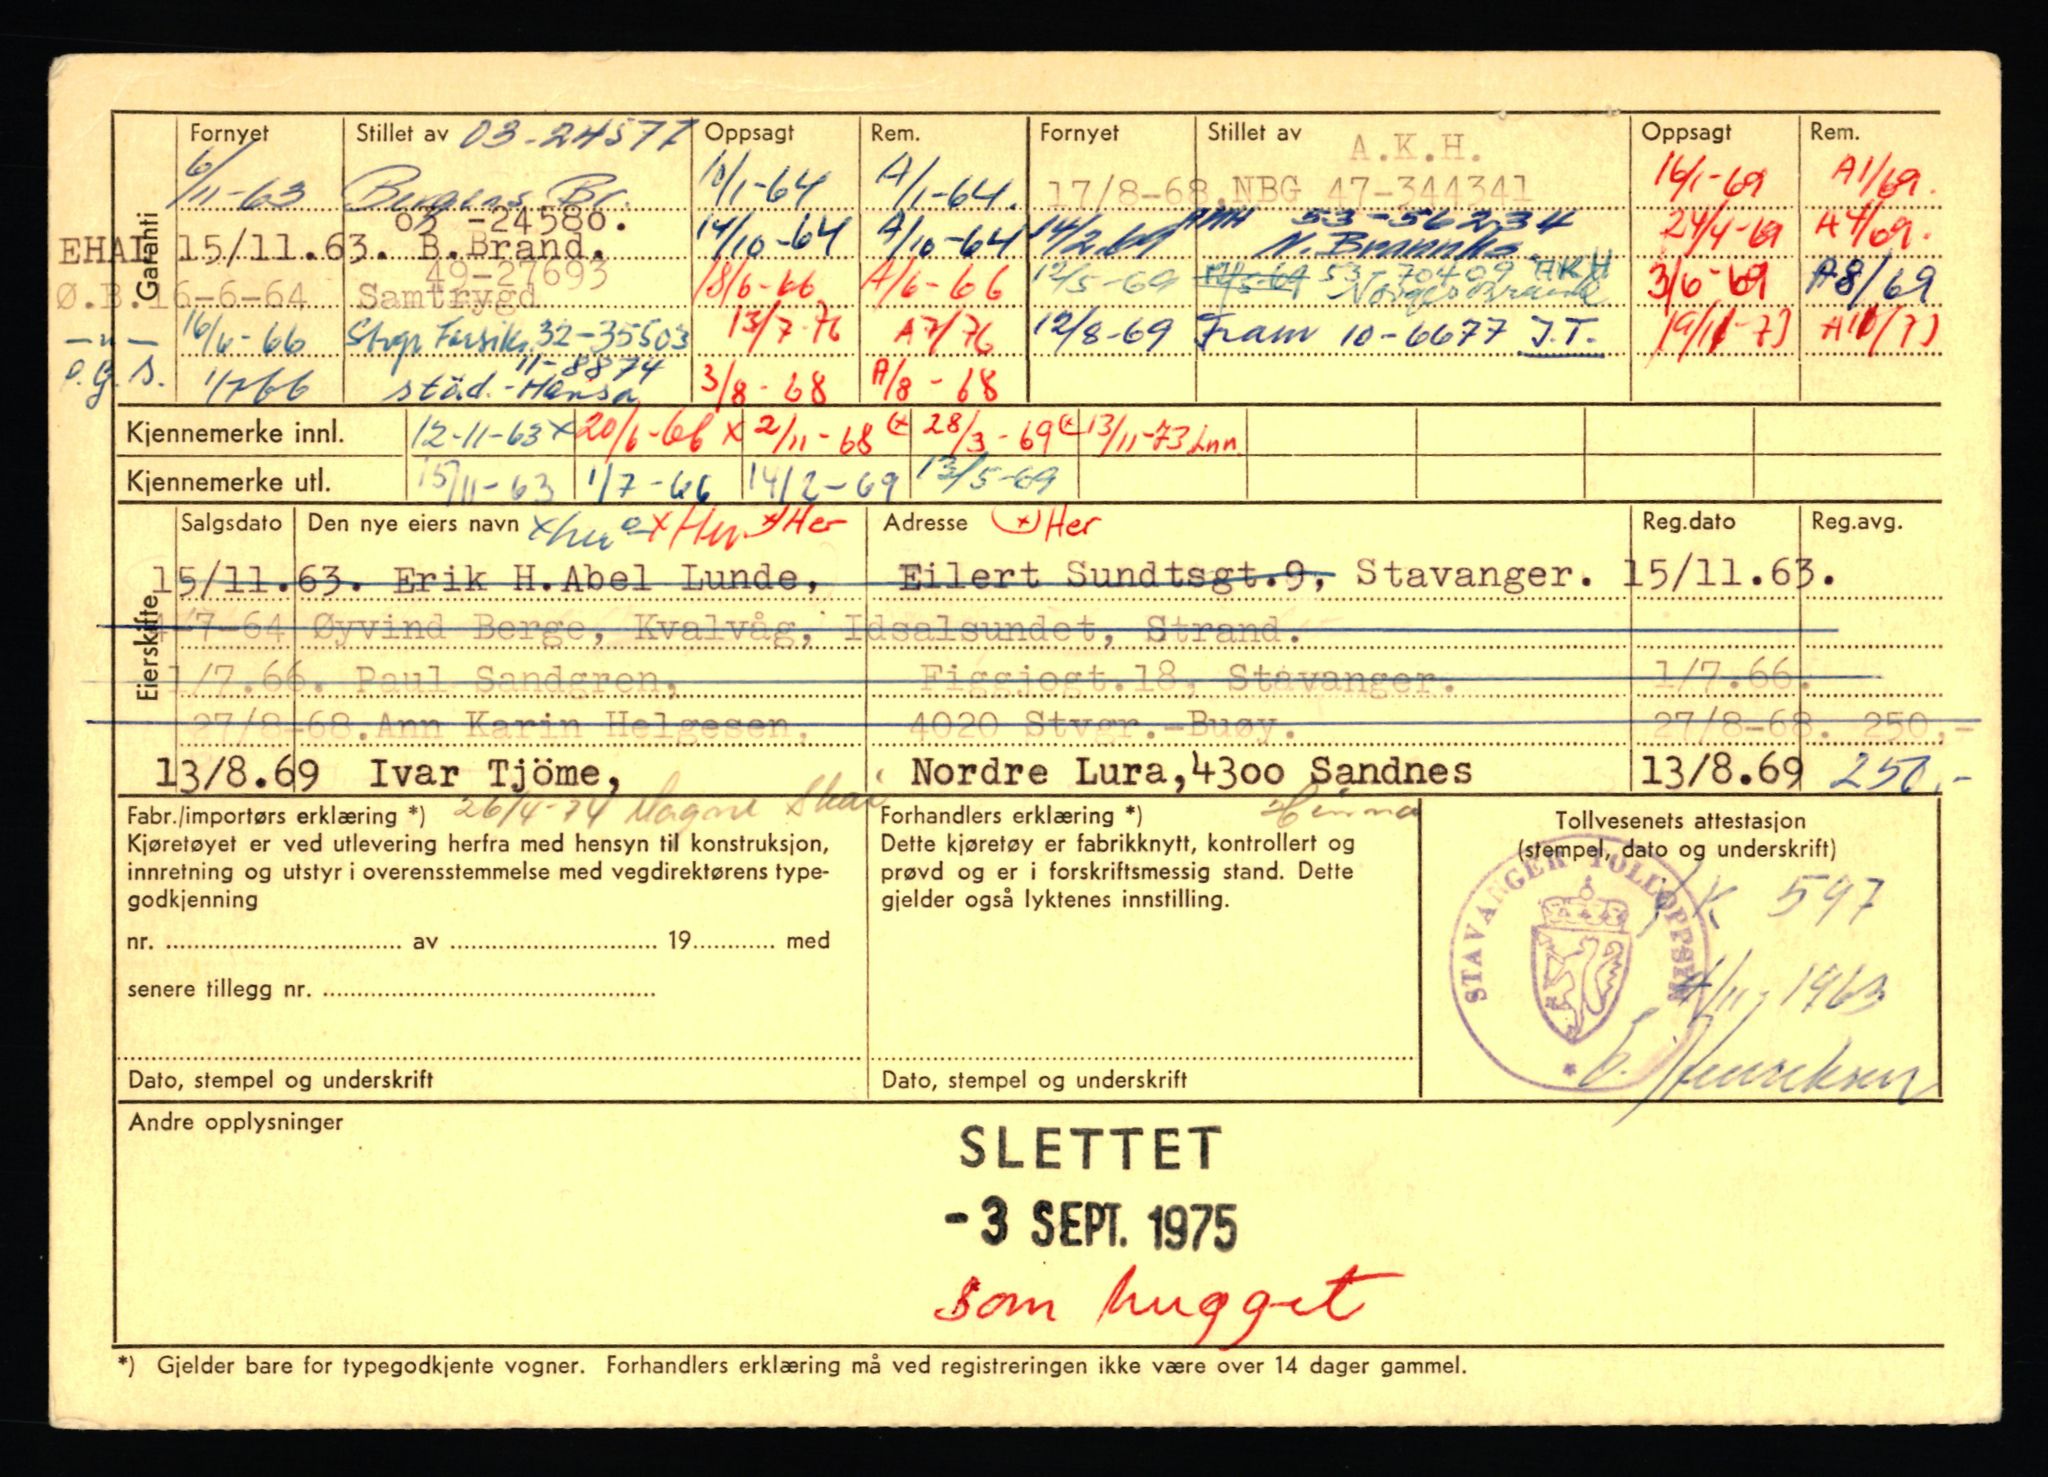 Garanti
Fornyet Stillet av 03-24577 Oppsagt Rem. Fornyet Stillet av Oppsagt Rem.
A.K.H.
6/11-63 Bergens Br. 10/1-64 A/1-64. 17/8-68. NBG 47-344341 16/1-69 A1/69.
03 -24580.
EHAL 15/11.63. B.Brand. 14/10-64 A/10-64 14/2.69 53-56234 24/4-69 A4/69.
49-27693
Ø.B.16-6-64 Samtrygd 18/6-66 A/6-66 12/5-69 53-70409 AKH 3/6-69 A8/69
-"- 16/6-66 Stvgr Forsikr. 32-35503 13/7-76 A7/76 12/8-69 Fram 10-6677 J.T. 19/11-73 A11/73
11-8874
o.g.s. 1/7-66 städ.-Hansa 3/8-68 A/8-68
Kjennemerke innl. 12-11-63 x 20/6-66 x 2/11-68 (x 28/3-69 (x 13/11-73 Inn.
Kjennemerke utl. 15/11-63 1/7-66 14/2-69 13/5-69
Eierskifte
Salgsdato Den nye eiers navn x Her x) Her Adresse (x) Her Reg.dato Reg.avg.
15/11.63. Erik H.Abel Lunde, Eilert Sundtsgt.9, Stavanger. 15/11.63.
4-7-64 Øyvind Berge, Kvalvåg, Idsalsundet, Strand.
1/7.66. Paul Sandgren, Figgjogt.18, Stavanger. 1/7.66.
27/8-68. Ann Karin Helgesen. 4020 Stvgr.-Buøy. 27/8-68. 250,-
13/8.69 Ivar Tjöme, Nordre Lura,4300 Sandnes 13/8.69 250,-
26/4-74 Magne Hinna
Fabr./importørs erklæring *)
Kjøretøyet er ved utlevering herfra med hensyn til konstruksjon,
innretning og utstyr i overensstemmelse med vegdirektørens type-
godkjenning
nr. .......... av .......... 19.......... med
senere tillegg nr. ..........
Dato, stempel og underskrift
Forhandlers erklæring *)
Dette kjøretøy er fabrikknytt, kontrollert og
prøvd og er i forskriftsmessig stand. Dette
gjelder også lyktenes innstilling.
Dato, stempel og underskrift
Tollvesenets attestasjon
(stempel, dato og underskrift)
STAVANGER TOLLOPPSYN
K 597
4/11-1963
E. Henriksen
Andre opplysninger
SLETTET
-3 SEPT. 1975
som hugget
*) Gjelder bare for typegodkjente vogner. Forhandlers erklæring må ved registreringen ikke være over 14 dager gammel.